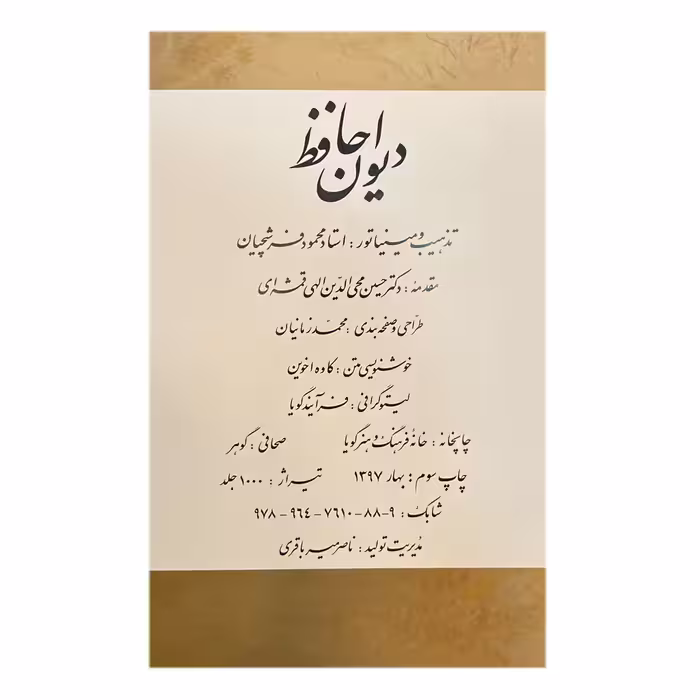 دیوان حافظ
تذهیب و مینیاتور : استاد محمود فرشچیان
مقدمهٔ : دکتر حسین محی الدّین الهی قمشه ای
طرّاحی و صفحه بندی : محمّد زمانیان
خوشنویسی متن : کاوه اخوین
لیتوگرافی : فرآیند گویا
چاپخانه : خانهٔ فرهنگ و هنر گویا صحافی : گوهر
چاپ سوم : بهار ۱۳۹۷ تیراژ : ۱۰۰۰ جلد
شابک : ۹-۸۸-۷۶۱۰-۹۶٤-۹۷۸
مُدیریت تولید : ناصر میرباقری